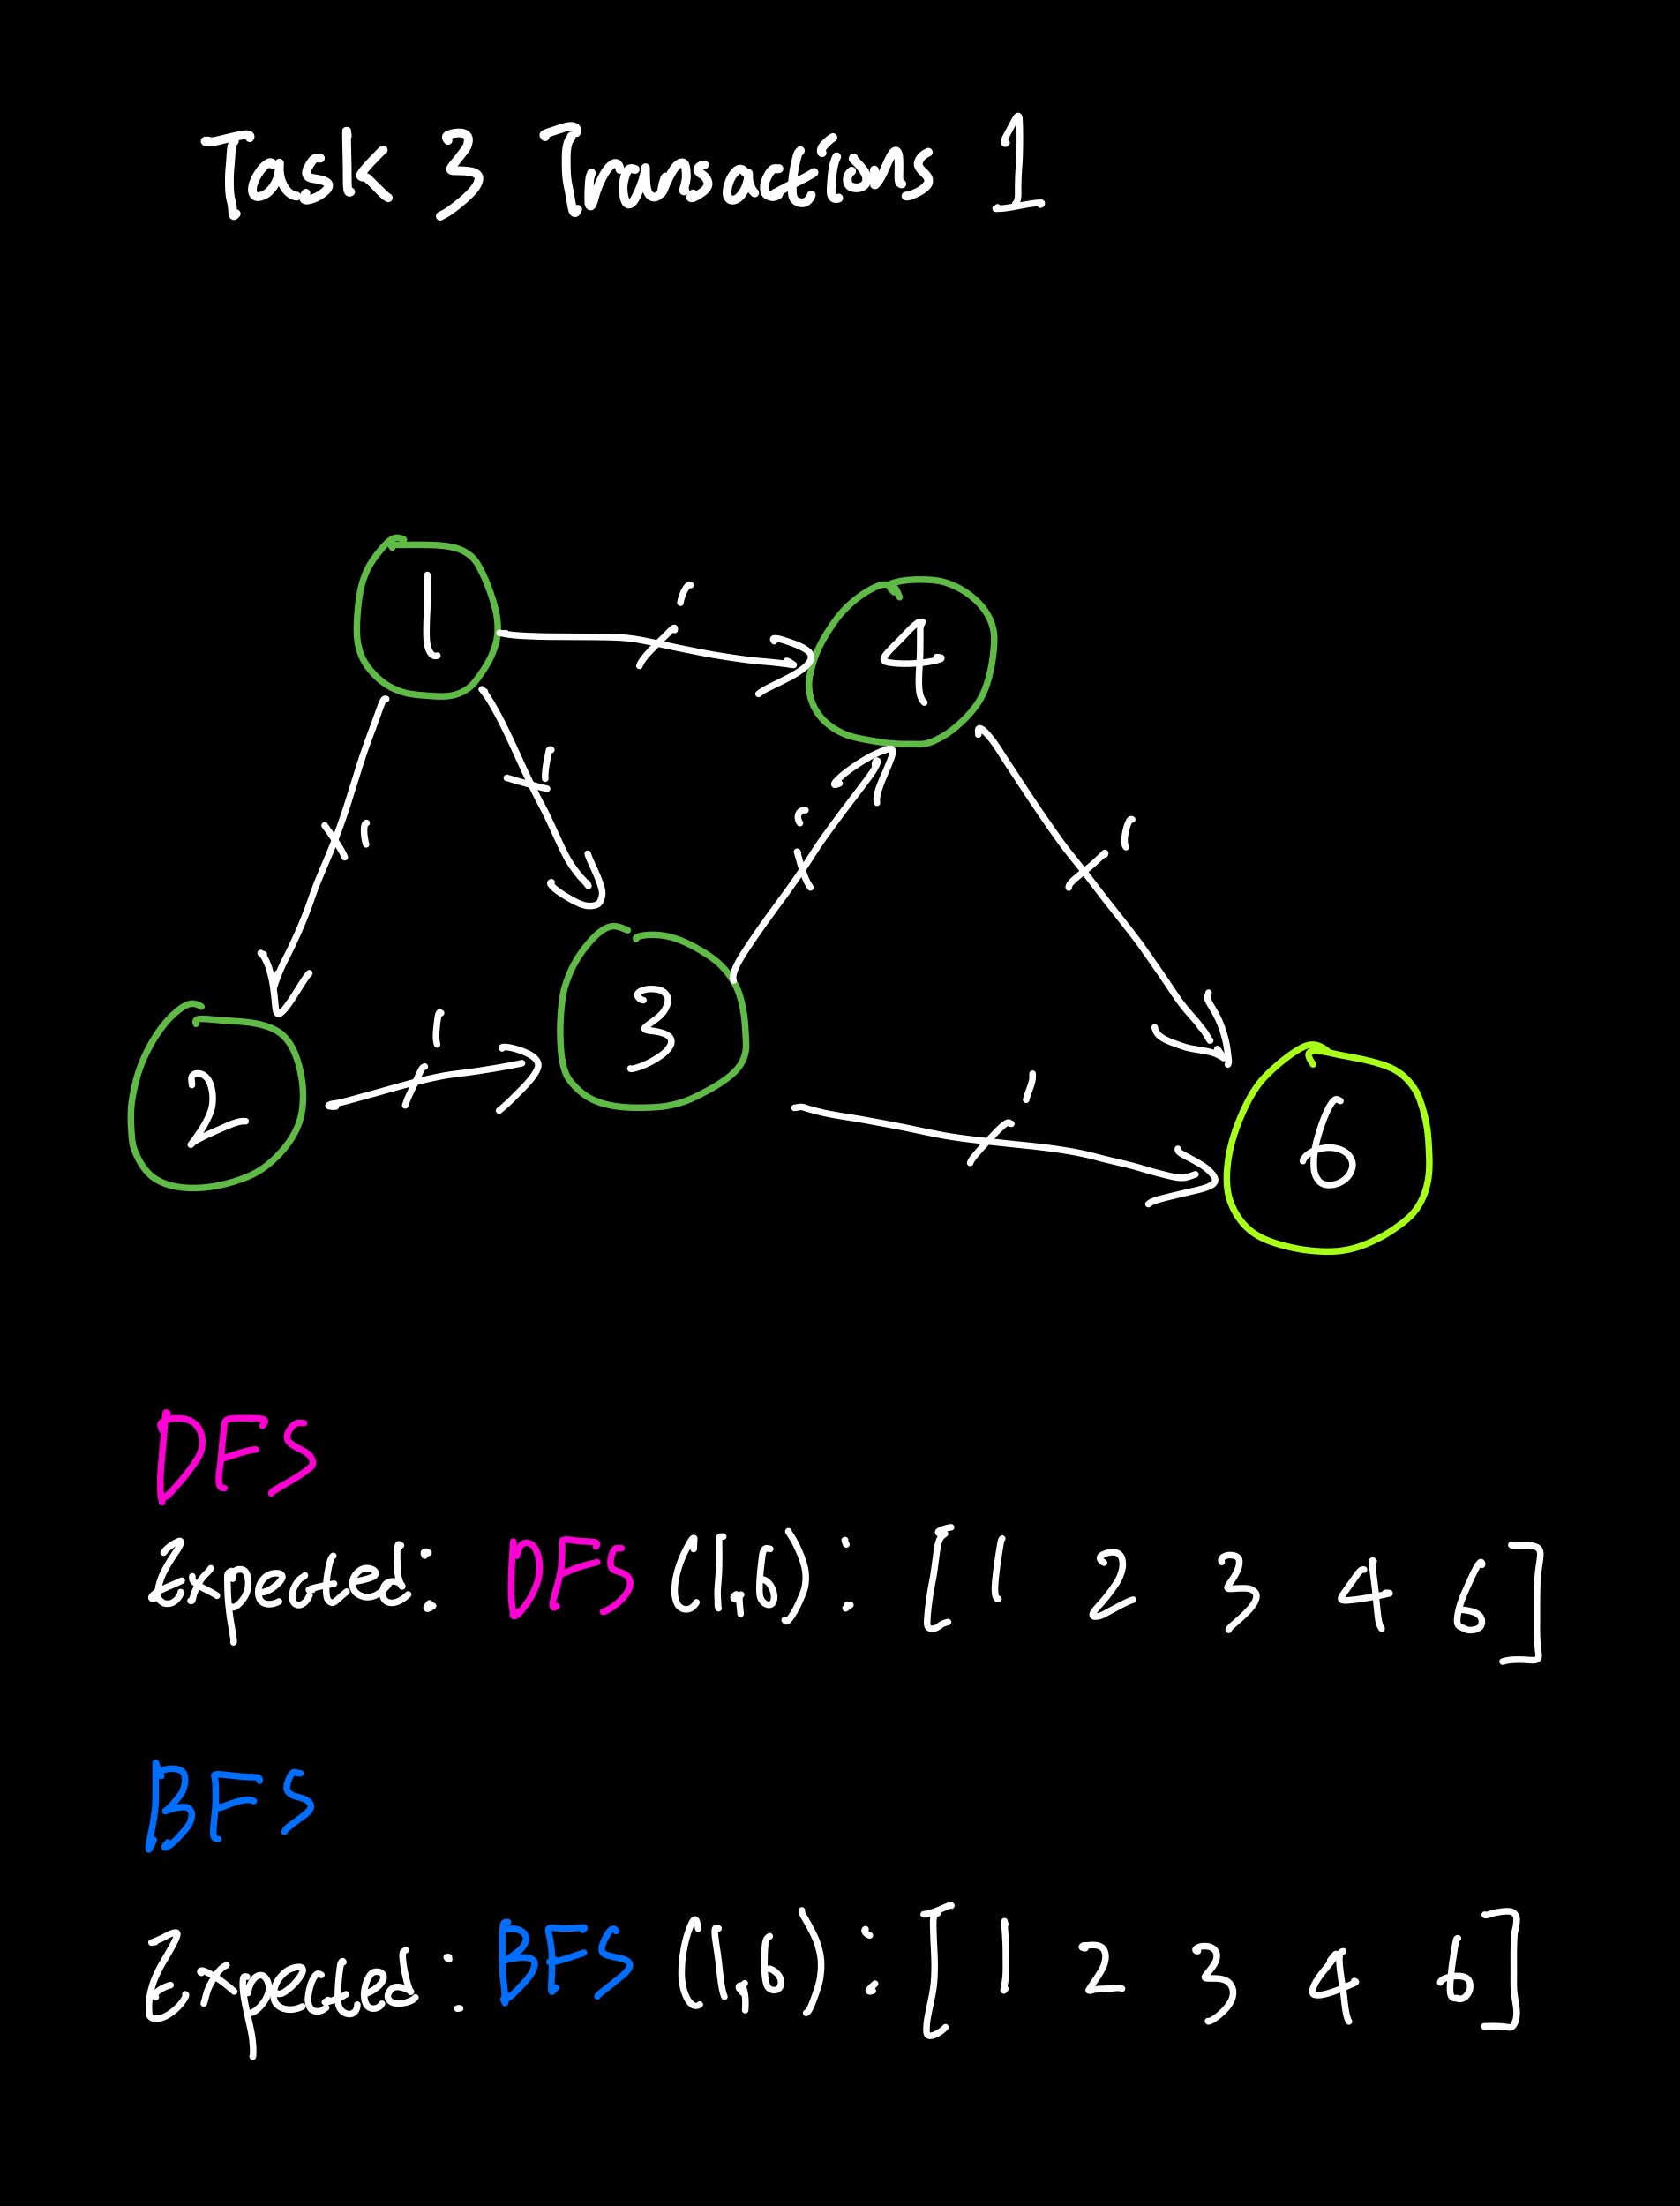 Task 3 Transactions 1
1
1
4
1
1
1
1
1
3
2
1
6
DFS
Expected: DFS (1,6): [1 2 3 4 6]
BFS
Expected: BFS (1,6): [1 2 3 4 6]